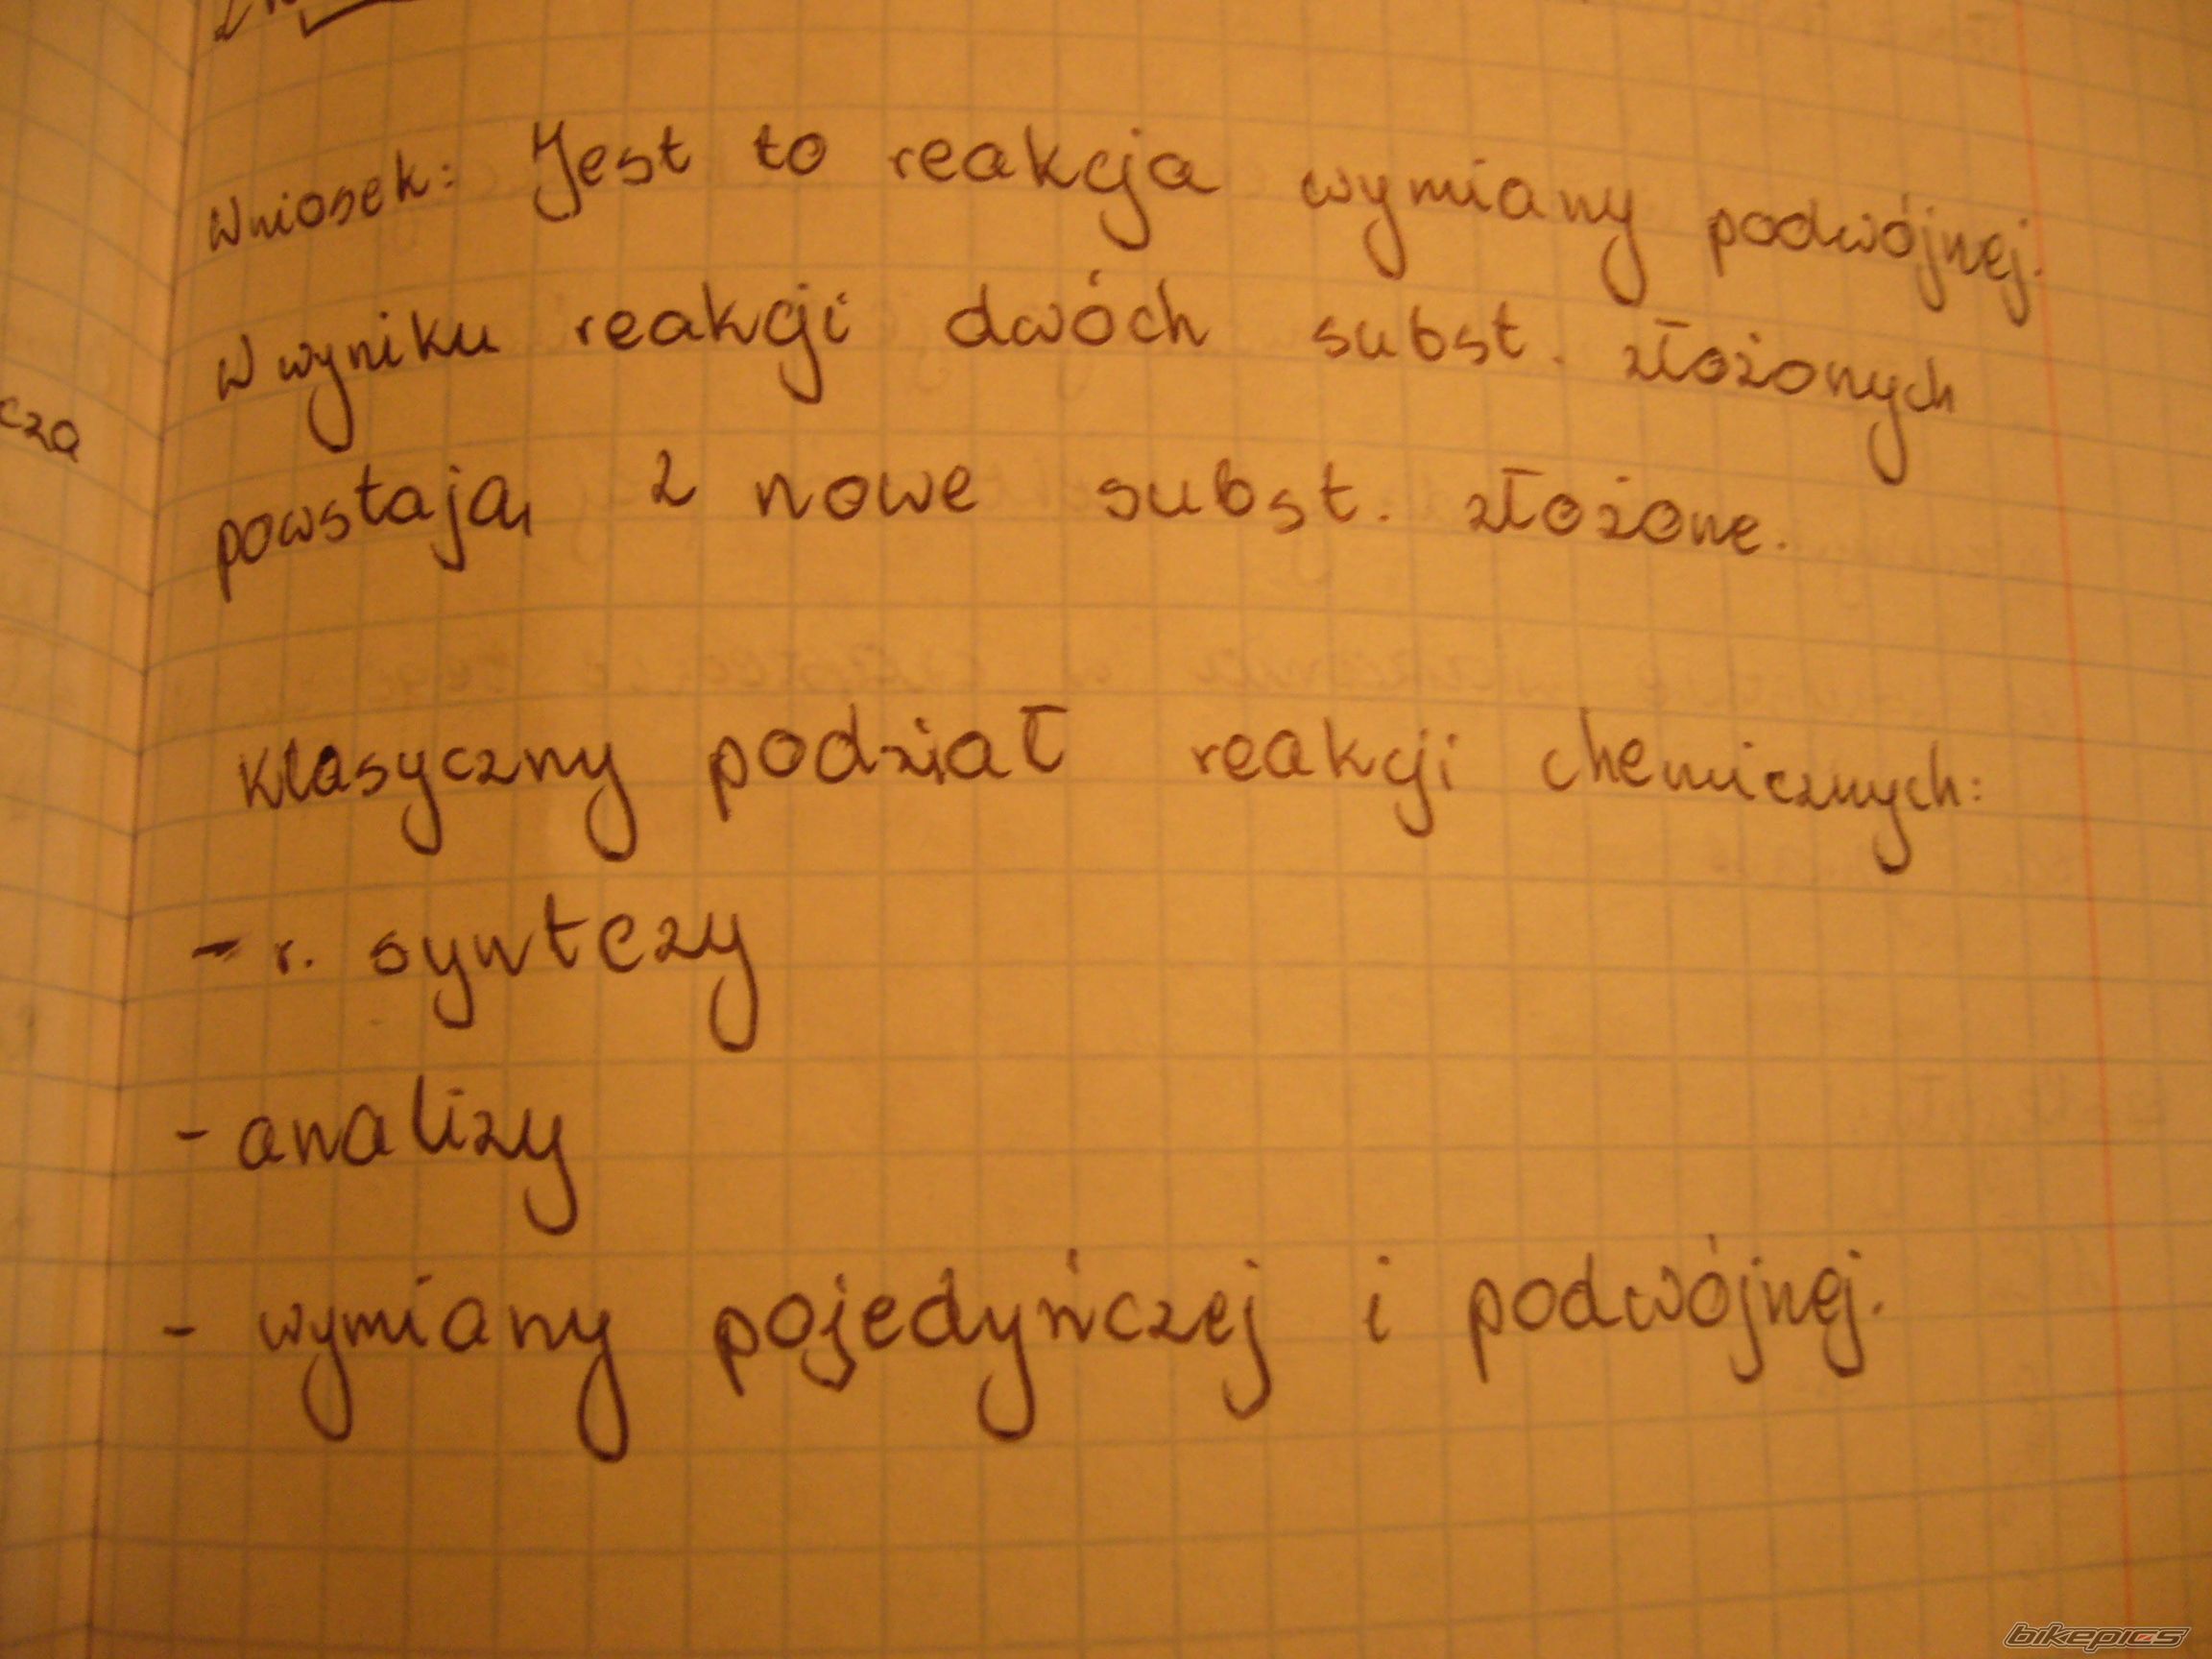 Wniosek: Jest to reakcja wymiany podwójnej.
W wyniku reakcji dwóch subst. złożonych
powstają 2 nowe subst. złożone.
Klasyczny podział reakcji chemicznych:
- r. syntezy
- analizy
- wymiany pojedyńczej i podwójnej.
cza
bikepics